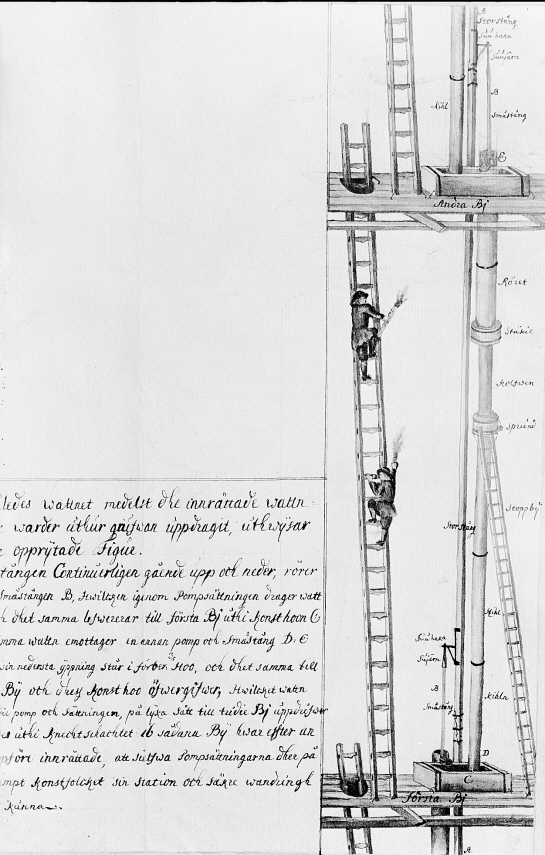 A
Storstång
B
Småstång
Kihl
E
Andra Bj
Röret
Stäkit
Kolfwen
Spründ
Stoppbÿ
Storstång
Kihl
B
Småstång
Kihln
D
C
Första Bj
A
ledes wattnet medelst dhe innrättade wattn
warder uthur grufwan uppdragit, uthwÿsar
opprÿtade Figur.
tången Continuerligen gående upp och neder, rörer
Småstången B, hwilken igenom Pompsättningen drager watt
dhet samma lefwererar till första Bj uthi Konsthoon C
mma wattn emottager en annan pomp och Småstång D. E
sin nedersta öppning står i förber. hoo, och dhet samma till
Bÿ och dhess Konsthoo öfwergifwer, hwilcket watn
pomp och sättningen, på lÿka sätt till tridie Bj uppdrifwer
uthi Knechtschachtet 16 sådana Bÿ hwar efter an
före innrättade, att sielfwa Pompsättningarna dher på
Konstfolcket sin Station och säkre wandring
kunna